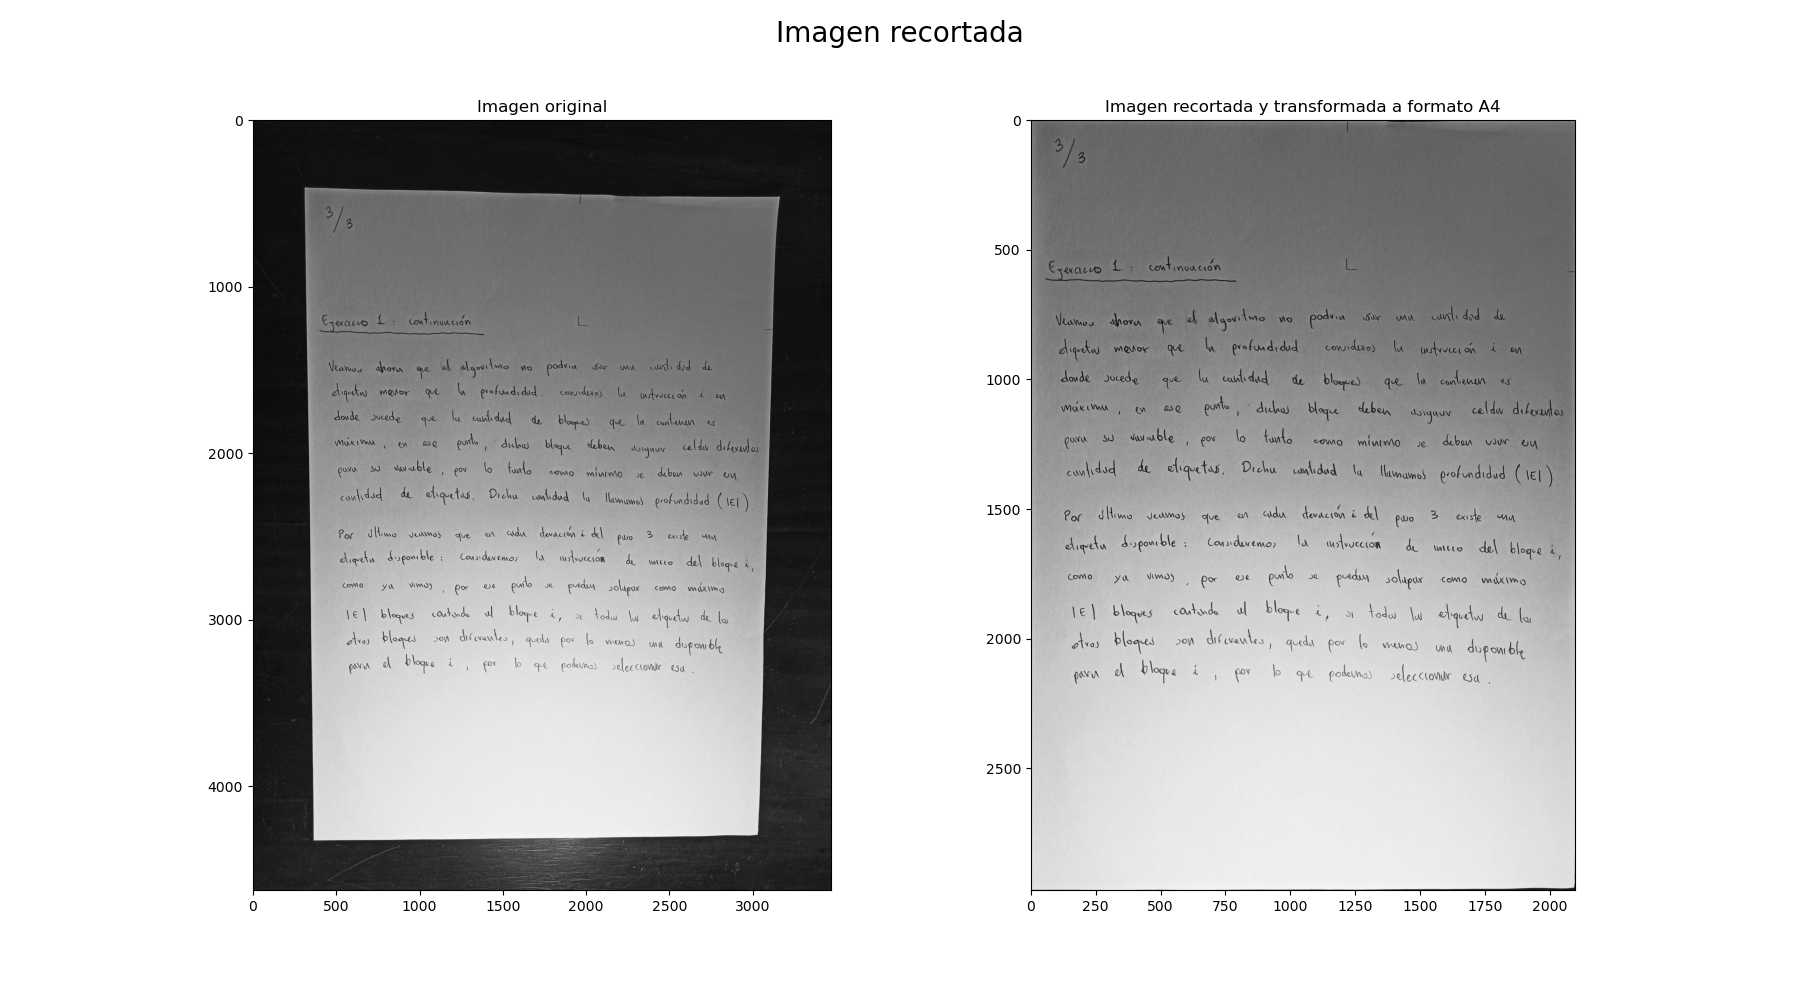 Imagen recortada
Imagen original
0
1000
2000
3000
4000
0 500 1000 1500 2000 2500 3000
3/3
Ejercicio 1 : continuación
Veamos ahora que el algoritmo no podria usar una cantidad de
etiquetas menor que la profundidad. consideros la instrucción i en
donde sucede que la cantidad de bloques que la contienen es
máxima, en ese punto, dichos bloque deben asignar celdas diferentes
para su variable, por lo tanto como mínimo se deben usar esa
cantidad de etiquetas. Dicha cantidad la llamamos profundidad (|E|)
Por último veamos que en cada iteración i del paso 3 existe una
etiqueta disponible: Consideremos la instrucción de inicio del bloque i,
como ya vimos, por ese punto se pueden solapar como máximo
|E| bloques contando al bloque i, si todas las etiquetas de los
otros bloques son diferentes, queda por lo menos una disponible
para el bloque i, por lo que podemos seleccionar esa.
Imagen recortada y transformada a formato A4
0
500
1000
1500
2000
2500
0 250 500 750 1000 1250 1500 1750 2000
3/3
Ejercicio 1 : continuación
Veamos ahora que el algoritmo no podria usar una cantidad de
etiquetas menor que la profundidad. consideros la instrucción i en
donde sucede que la cantidad de bloques que la contienen es
máxima, en ese punto, dichos bloque deben asignar celdas diferentes
para su variable, por lo tanto como mínimo se deben usar esa
cantidad de etiquetas. Dicha cantidad la llamamos profundidad (|E|)
Por último veamos que en cada iteración i del paso 3 existe una
etiqueta disponible: Consideremos la instrucción de inicio del bloque i,
como ya vimos, por ese punto se pueden solapar como máximo
|E| bloques contando al bloque i, si todas las etiquetas de los
otros bloques son diferentes, queda por lo menos una disponible
para el bloque i, por lo que podemos seleccionar esa.